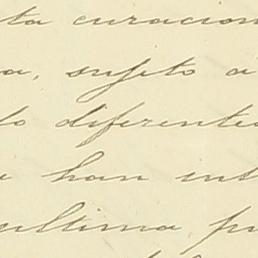 ta curacion
a, sujeto a
do diferente
a han int
ultima pu